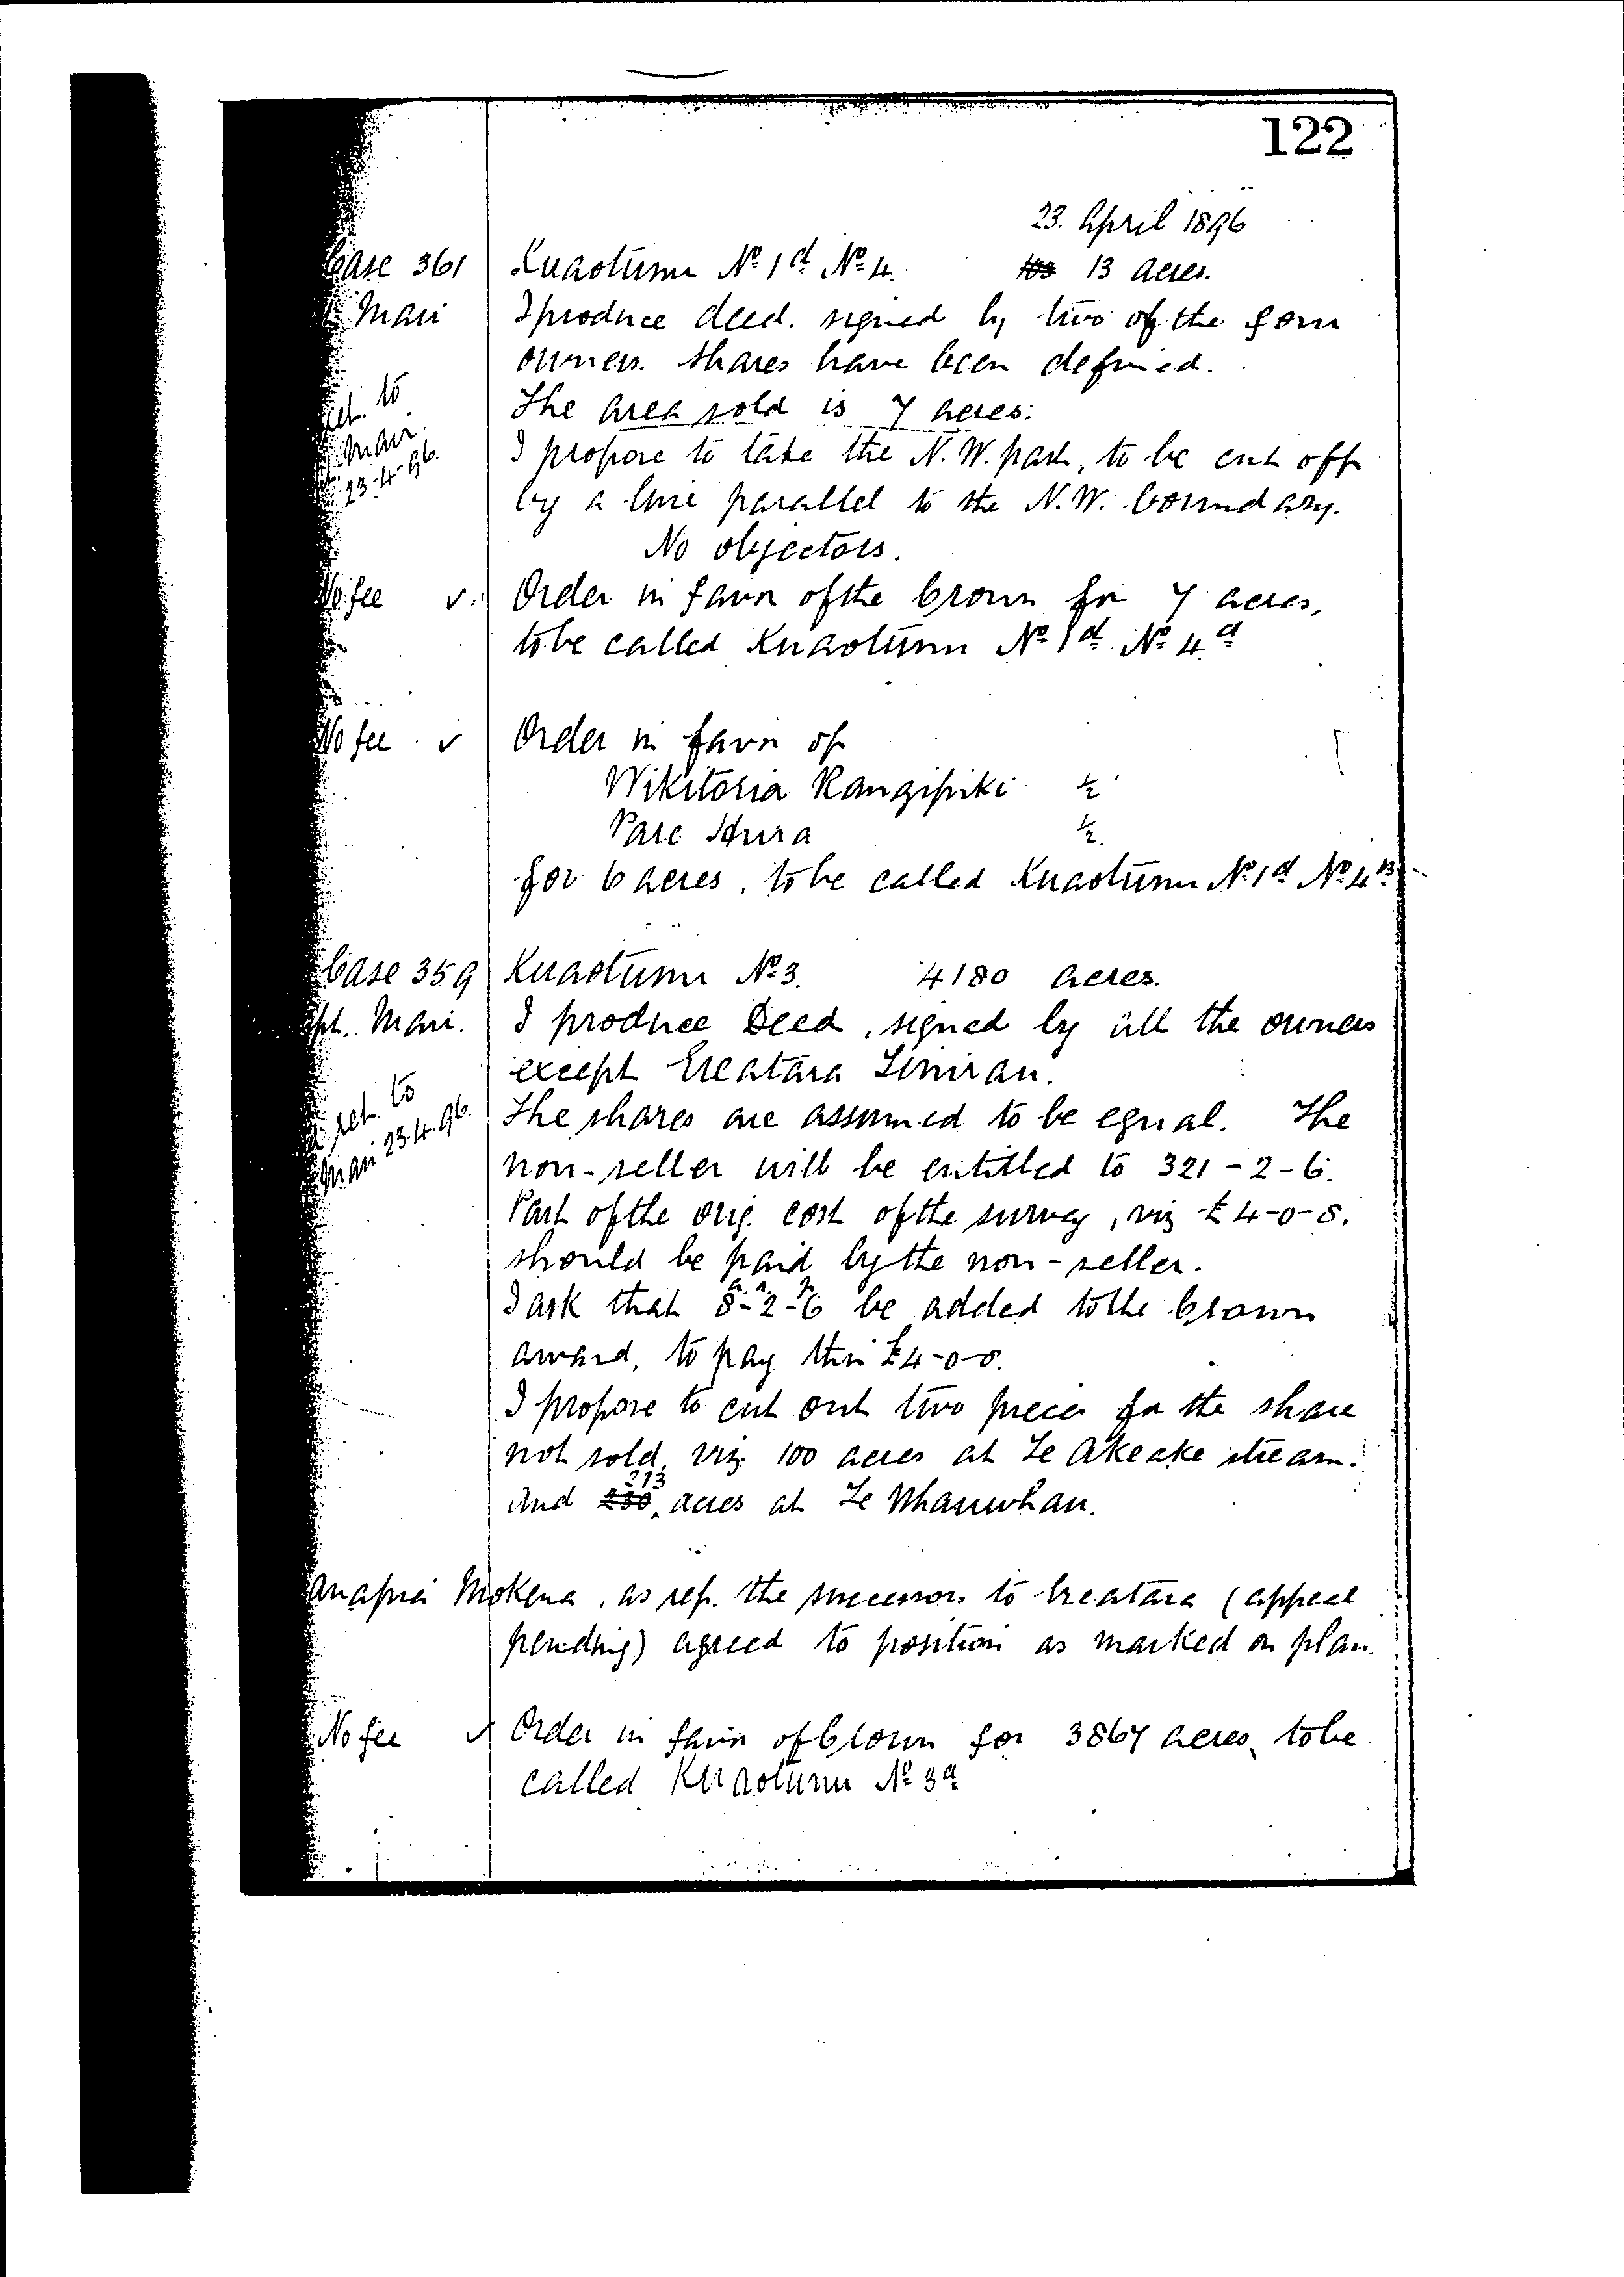 122
23. April 1896
Case 361 Kuaotunu No. 1d No. 4. 13 acres.
Mair I produce deed. signed by two of the four
owners. Shares have been defined.
ret. to The area sold is 7 acres.
Mair. I propose to take the N.W. part, to be cut off
23-4-96. by a line parallel to the N.W. boundary.
No objectors.
No fee ✓ Order in favor of the Crown for 7 acres,
to be called Kuaotunu No. 1d No. 4a
No fee ✓ Order in favor of
Wikitoria Rangipiki ½
Pare Huia ½.
for 6 acres, to be called Kuaotunu No. 1d No. 4B
Case 359 Kuaotunu No. 3. 4180 acres.
pt. Mair. I produce Deed, signed by all the owners
except Ereatara
ret. to The shares are assumed to be equal. The
Mair 23.4.96. non-seller will be entitled to 321-2-6.
Part of the orig. cost of the survey, viz £4-0-8.
should be paid by the non-seller.
a. r. p.
I ask that 8-2-6 be added to the Crown
award, to pay this £4-0-8.
I propose to cut out two pieces for the share
not sold, viz. 100 acres at Te Akeake stream.
213
and 230 acres at Te Whauwhau.
Mokena, as rep. the successors to Ereatara (appeal
pending) agreed to position as marked on plan.
No fee ✓ Order in favor of Crown for 3867 acres, to be
called Kuaotunu No. 3a